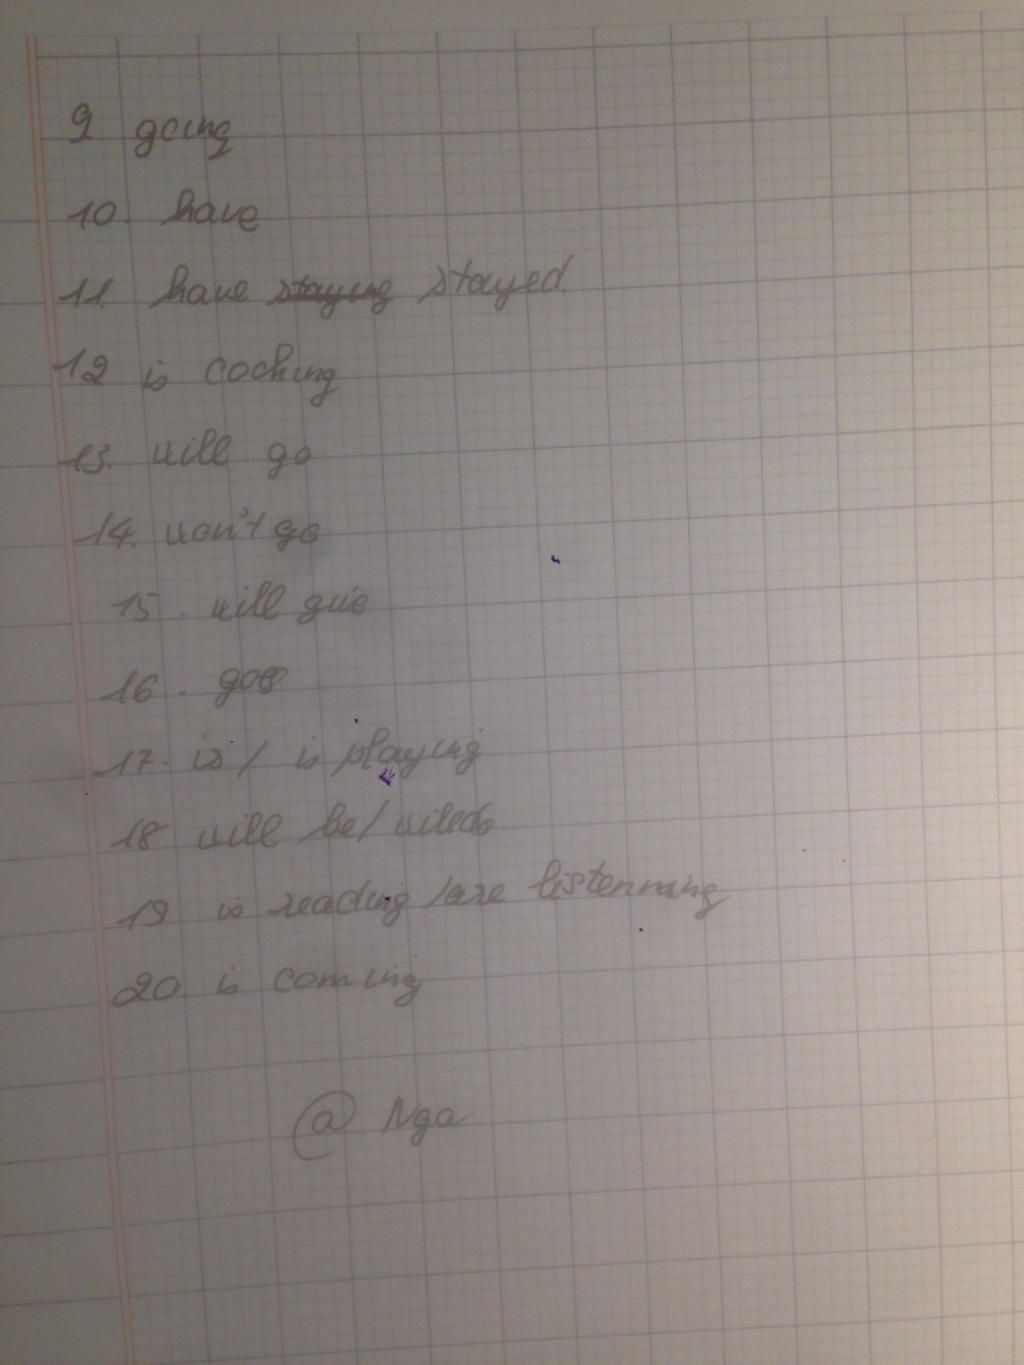 9 going
10. have
11. have staying stayed.
12 is coching
13. will go
14. won't go
15. will give
16. goes
17. is / is playing
18 will be / will do
19 is reading / are listenning
20 is coming
@ Nga